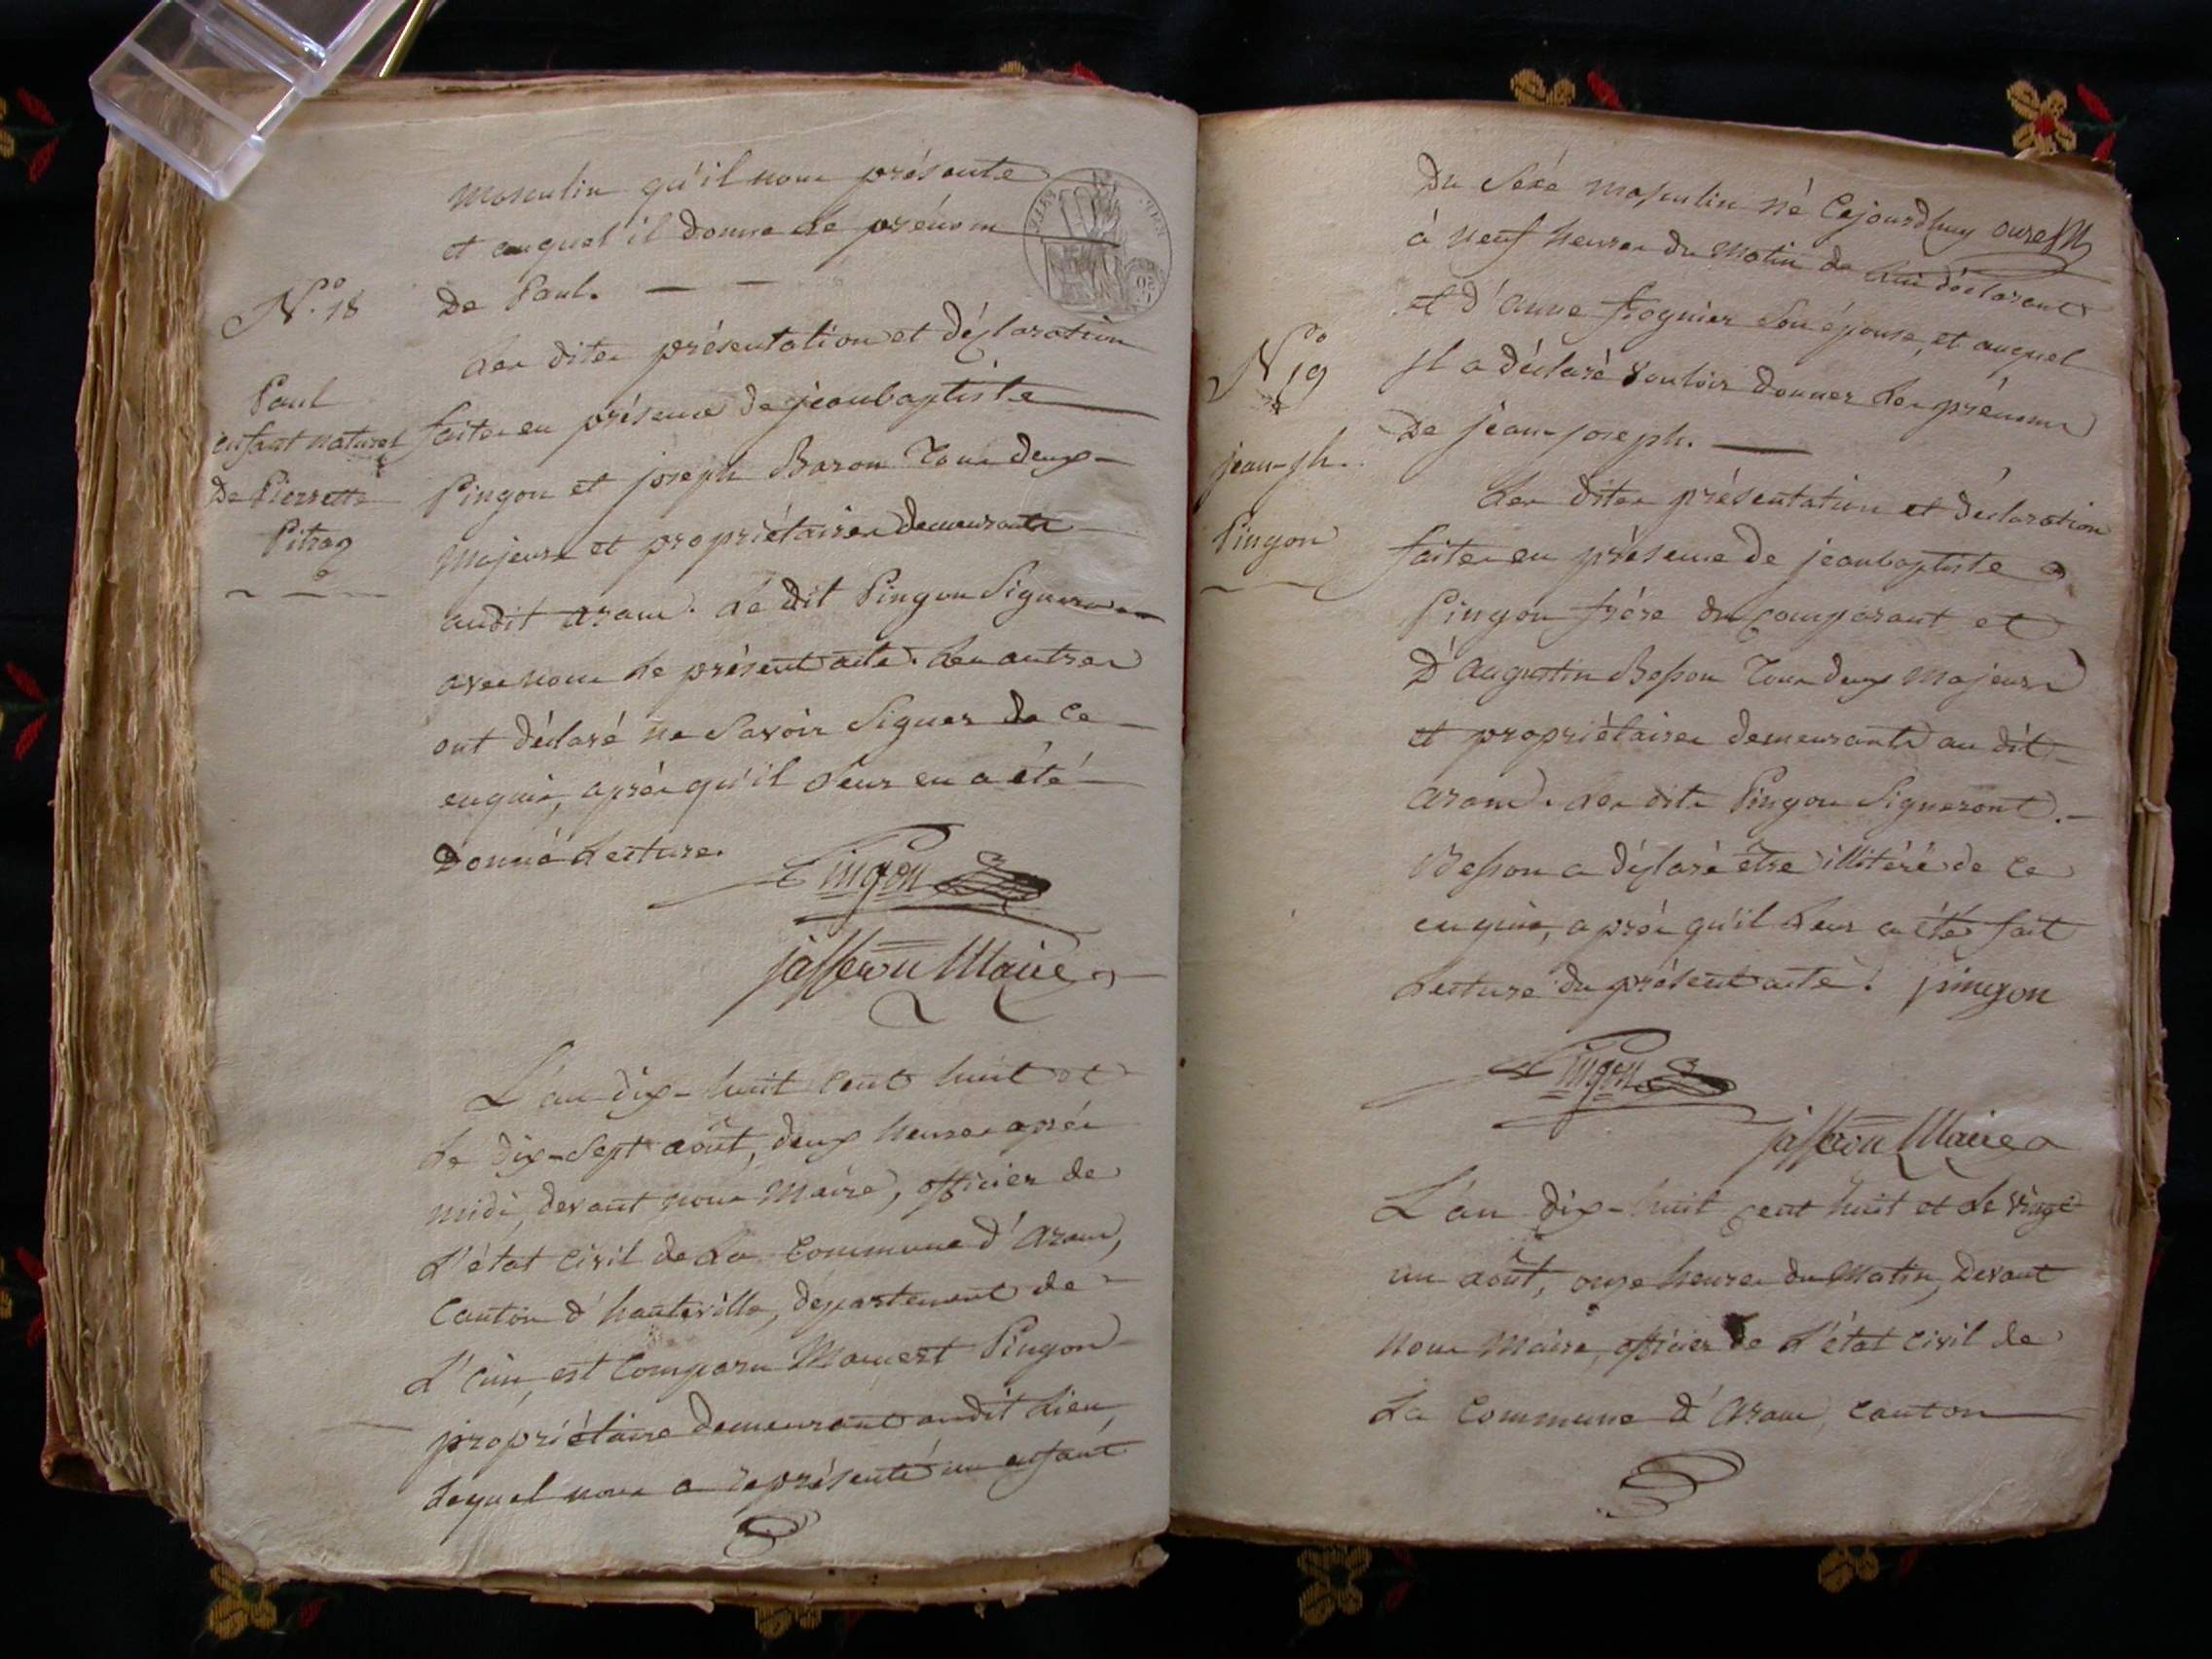 masculin qu'il nous présente
et auquel il donne le prénom
de Paul.
N.º 18
Paul
enfant naturel
de Pierrette
Pitrag
Les dites présentation et déclaration
faites en présence de jeanbaptiste
Pingon et joseph Baron tous deux
majeurs et propriétaires demeurants
audit aranc. Le dit Pingon signera
avec nous le présent acte. Les autres
ont déclaré ne savoir signer de ce
enquis, après qu'il leur en a été
donné lecture.
Pingon
jasseron Maire
L'an dix-huit cent huit et
le dix-sept août, deux heures après
midi, devant nous Maire, officier de
L'état civil de la commune d'aranc,
canton d'hauteville, département de
L'ain, est comparu Pingon
propriétaire demeurant audit lieu,
lequel nous a représenté un enfant
du séxe masculin né cejourdhuy
à neuf heures du matin de lui déclarant
et d'anne frognier son épouse, et auquel
Il a déclaré vouloir donner les prénoms
de jean-joseph.
Nº 19
jean-jh.
Pingon
Les dites présentation et déclaration
faites en présence de jeanbaptiste
Pingon frère du comparant et
D'augustin Besson tous deux majeurs
et propriétaires demeurants au dit
aranc. Les dits Pingon signeront.
Besson a déclaré être illitéré de ce
enquis, après qu'il leur a été fait
lecture du présent acte. pingon
Pingon
jasseron Maire
L'an dix-huit cent huit et le vingt
un août, onze heures du matin, devant
nous maire, officier de L'état civil de
La commune d'aranc, canton